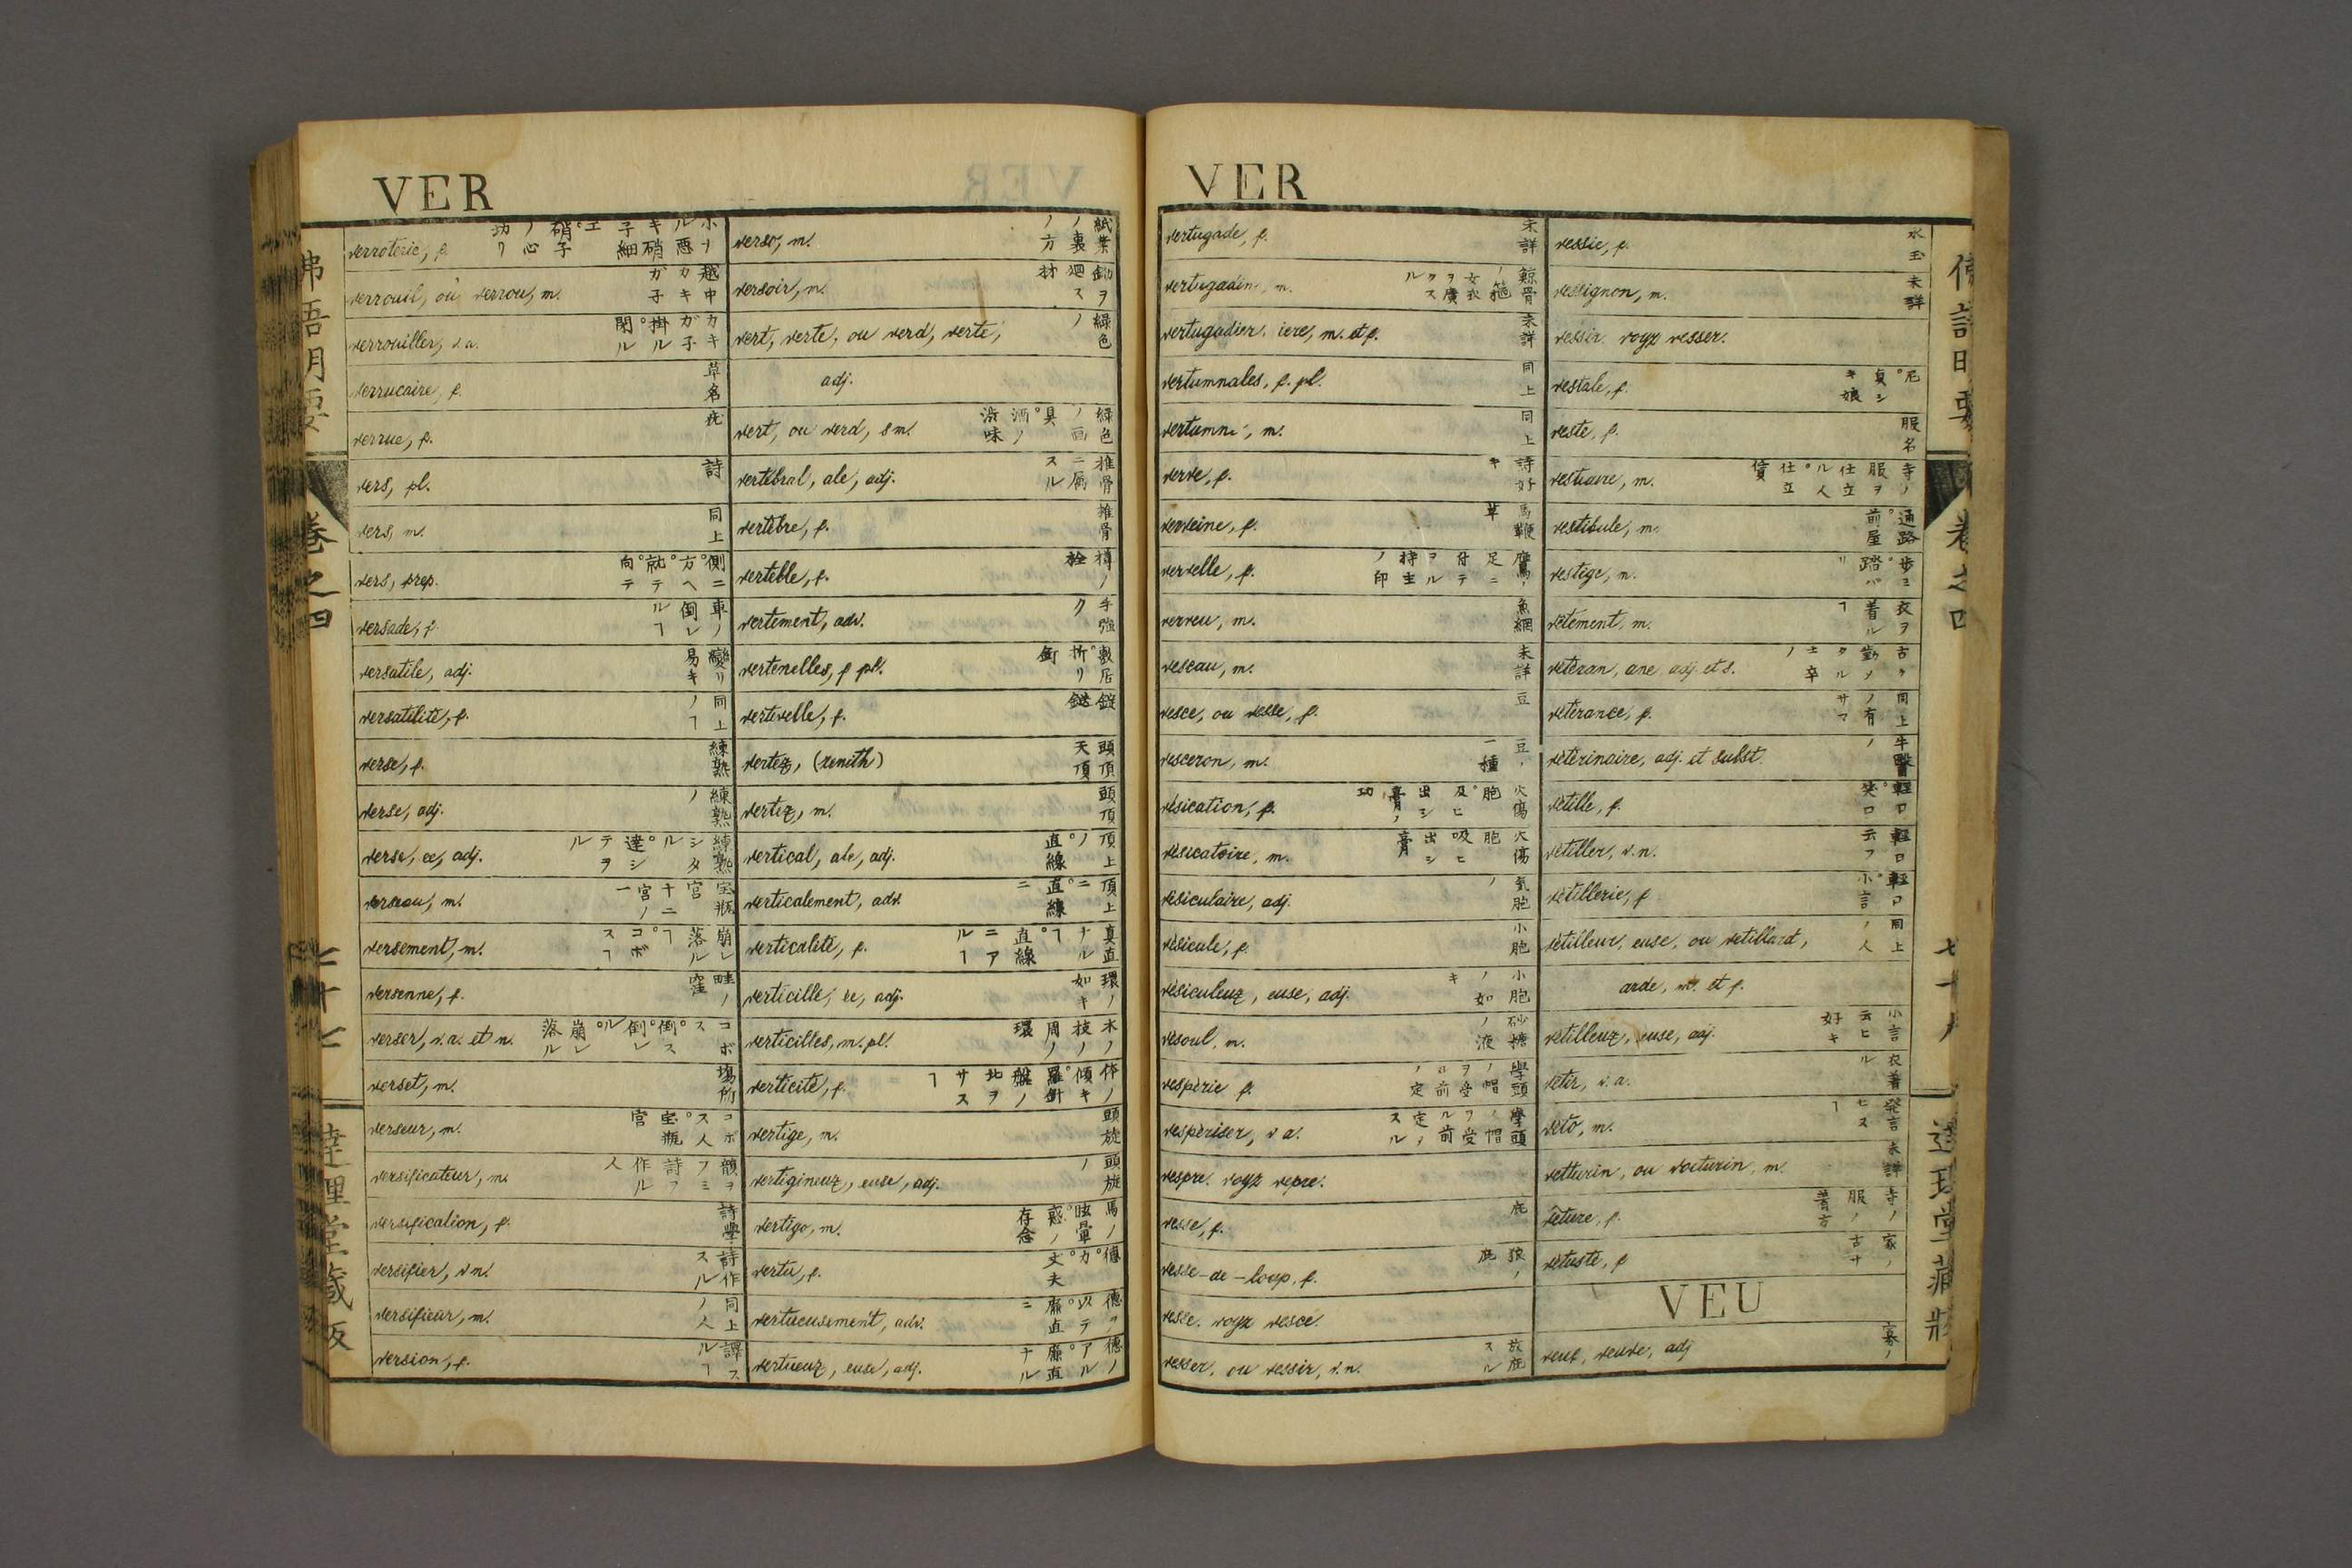 VER
verroterie, f.
verrouil, ou verrou, m. 越中カキガ子
verrouiller, v.a. カキガ子掛ル。閉ル
verrucaire, f. 草名
verrue, f. 疣
vers, pl. 詩
vers, m. 同上
vers, prep. 側ニ。方ヘ。就テ。向テ
versade, f. 車ノ倒レルヿ
versatile, adj. 變リ易キ
versatilité, f. 同上ノヿ
verse, f. 練熟
verse, adj. 練熟ノ
versé, ée, adj. 練熟シタル。達シテヲル
verseau, m. 宝瓶宮十二宮ノ一
versement, m. 崩レ落ルヿ。コボスヿ
versenne, f. 畦ノ窪
verser, v.a. et n. コボス。倒ス。倒レル。崩レ落ル
verset, m. 場所
verseur, m. コボス人。宝瓶宮
versificateur, m. 韻ヲフミ詩ヲ作ル人
versification, f. 詩學
versifier, v.n. 詩作スル
versifieur, m. 同上ノ人
version, f. 譯スルヿ
verso, m. 紙葉ノ裏ノ方
versoir, m. 鋤ヲ廻ス材
vert, verte, ou verd, verte, 綠色ノ
adj.
vert, ou verd, sm.
vertébral, ale, adj. 推骨ニ属スル
vertèbre, f. 推骨
vertèble, f. 樽ノ栓
vertement, adv. 手強ク
vertenelles, f. pl.
vertevelle, f.
vertez, (zenith) 頭頂天頂
vertez, m. 頭頂
vertical, ale, adj. 頂上ノ。直線
verticalement, adv. 頂上ニ。直線ニ
verticalité, f. 真直ナルヿ。直線ニアルヿ
verticille, ée, adj. 環ノ如キ
verticilles, m. pl. 木ノ枝ノ周ノ環
verticité, f. 体ノ傾キ。羅針盤ノ北ヲサスヿ
vertige, m. 頭旋
vertigineux, euse, adj. 頭旋ノ
vertigo, m. 馬ノ眩暈。惑ノ存念
vertu, f. 德。力。丈夫
vertueusement, adv. 德ヲ以テ。廉直ニ
vertueux, euse, adj. 德ノアル。廉直ナル
巻之四
七十七
VER
vertugade, f. 未詳
vertugadin, m.
vertugadier, iere, m. et f. 未詳
vertumnales, f. pl. 同上
vertumne, m. 同上
verve, f. 詩好キ
verveine, f. 馬鞭草
vervelle, f. 鷹ノ足ニ付テヲル持主ノ印
verveu, m. 魚網
veseau, m. 未詳
vesce, ou vesse, f. 豆
vesceron, m. 豆ノ一種
vésication, f.
vésicatoire, m. 火傷胞吸ヒ出シ膏
vésiculaire, adj. 気胞ノ
vésicule, f. 小胞
vésiculeux, euse, adj. 小胞ノ如キ
vesoul, m. 砂糖ノ液
vespérie f.
vespériser, v.a.
vespre. voyz vepre.
vesse, f. 屁
vesse-de-loup, f. 狼ノ屁
vesse. voyz vesce.
vesser, ou vessir, v.n. 放屁スル
vessie, f. 水玉
vessignon, m. 未詳
vessir voyz vesser.
vestale, f. 尼。貞シキ娘
veste, f. 服名
vestiaire, m. 寺ノ服ヲ仕立ル人。仕立賃
vestibule, m. 通路。前屋
vestige, m.
vetement, m. 衣ヲ着ルヿ
vétéran, ane adj. et s.
vétérance, f. 同上ノ有サマ
vétérinaire, adj. et subst. 牛醫ノ
vétille, f.
vétiller, v.n. 軽口云フ
vétillerie, f. 軽口。小言
vétilleur, euse, ou vetillard, 同上ノ人
arde, m. et f.
vétilleux, euse, adj. 小言云ヒ好キ
vetir, v.a. 衣着ル
veto, m.
vetturin, ou voiturin, m. 未詳
veture, f. 寺ノ服ノ着方
vétusté, f. 家ノ古サ
VEU
veuf, veuve, adj 寡ノ
巻之四